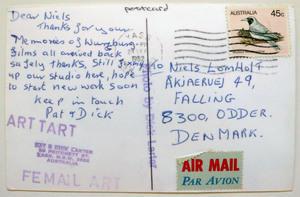 postcard
Dear Niels
Thanks for your
Memories of
films all arrived back
safely thanks. Still fixing
up our studio here, hope
to start new work soon
Keep in touch
Pat + Dick
ART TART
PAT & DICK LARTER
AUSTRALIA
FEMAIL ART
AUSTRALIA
45c
To Niels Lomholt
FALLING
8300, ODDER.
DENMARK.
AIR MAIL
PAR AVION